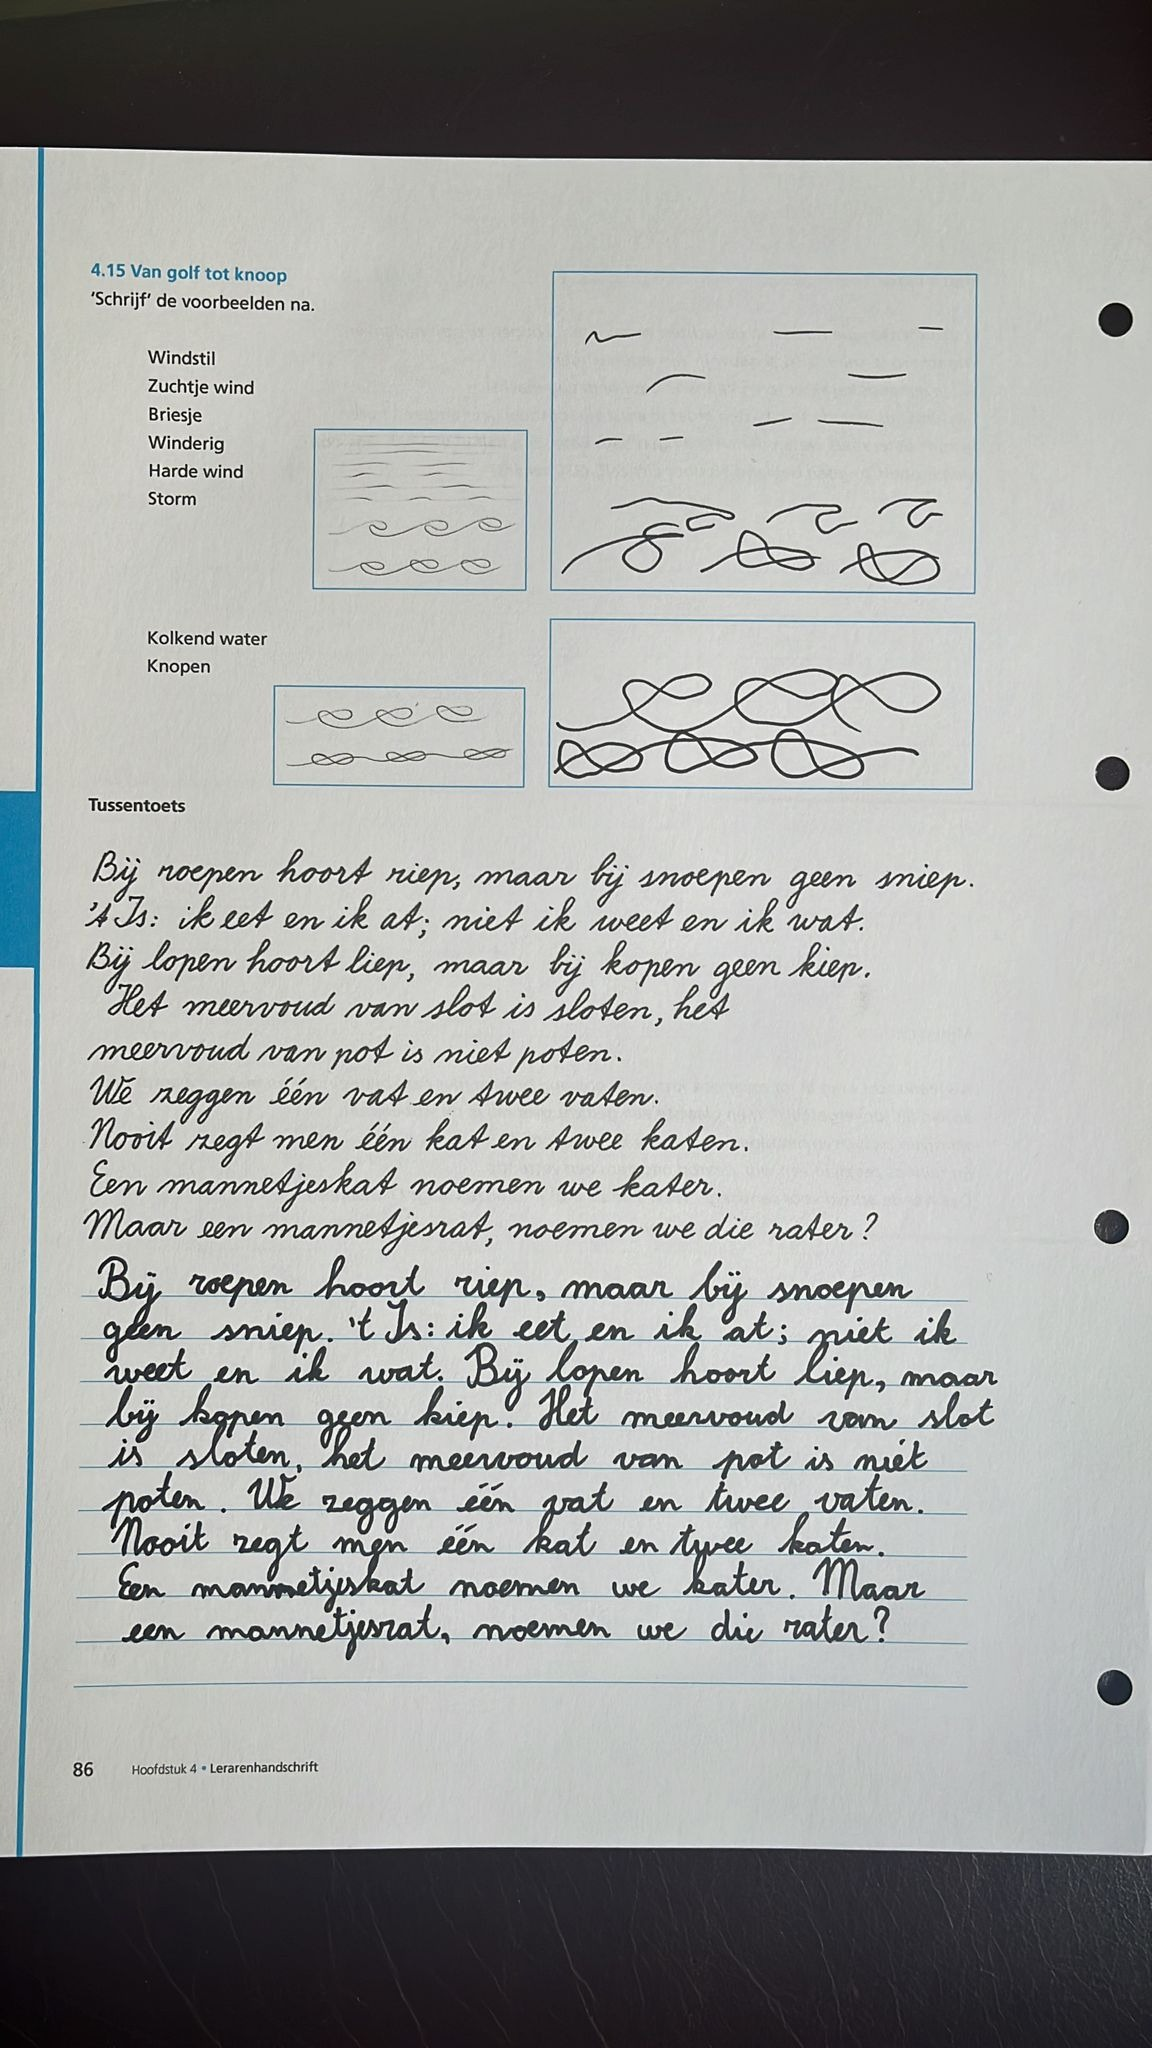 4.15 Van golf tot knoop
'Schrijf' de voorbeelden na.
Windstil
Zuchtje wind
Briesje
Winderig
Harde wind
Storm
Kolkend water
Knopen
Tussentoets
Bij roepen hoort riep, maar bij snoepen geen sniep.
't Is: ik eet en ik at; niet ik weet en ik wat.
Bij lopen hoort liep, maar bij kopen geen kiep.
Het meervoud van slot is sloten, het
meervoud van pot is niet poten.
We zeggen één vat en twee vaten.
Nooit zegt men één kat en twee katen.
Een mannetjeskat noemen we kater.
Maar een mannetjesrat, noemen we die rater?
Bij roepen hoort riep, maar bij snoepen
geen sniep. 't Is: ik eet en ik at; niet ik
weet en ik wat. Bij lopen hoort liep, maar
bij kopen geen kiep. Het meervoud van slot
is sloten, het meervoud van pot is niet
poten. We zeggen één vat en twee vaten.
Nooit zegt men één kat en twee katen.
Een mannetjeskat noemen we kater. Maar
een mannetjesrat, noemen we die rater?
86 Hoofdstuk 4 • Lerarenhandschrift